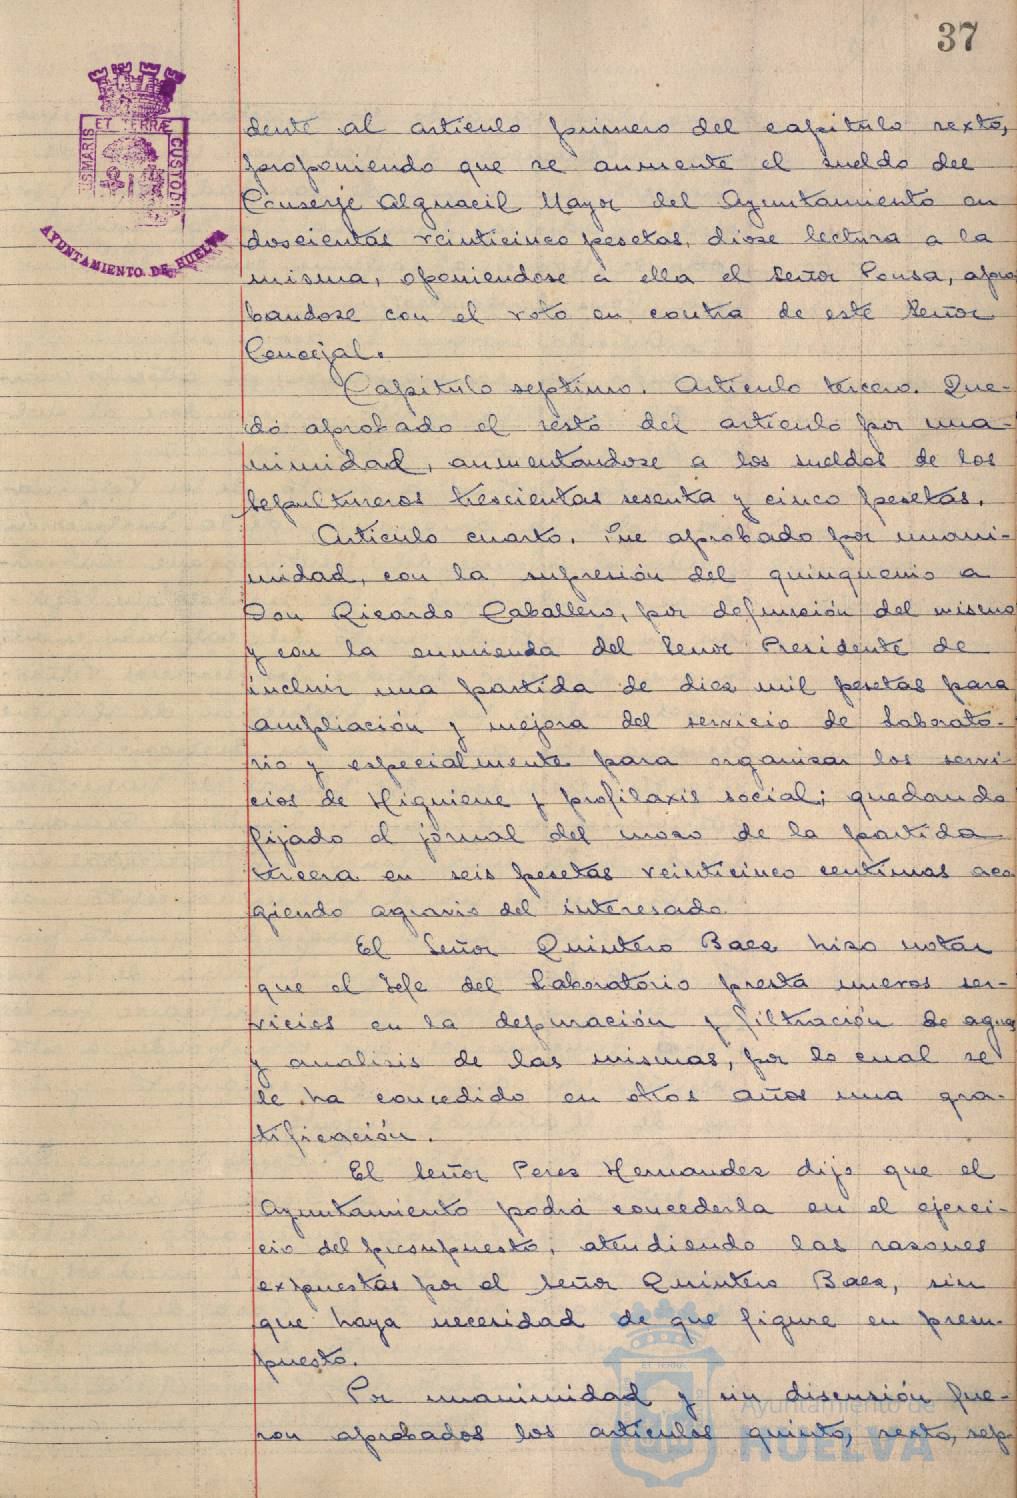 37
ET TERRÆ
CUSTODIA
AYUNTAMIENTO DE HUELVA
dente al articulo primero del capitulo sexto,
proponiendo que se aumente el sueldo del
Conserje Alguacil Mayor del Ayuntamiento en
doscientas veinticinco pesetas, diose lectura a la
misma, oponiendose a ella el Señor Ponsa, apro
bandose con el voto en contra de este Señor
Concejal.
Capitulo septimo. Articulo tercero. Que-
dó aprobado el resto del articulo por una-
nimidad, aumentandose a los sueldos de los
Sepultureros trescientas sesenta y cinco pesetas.
Articulo cuarto. Fue aprobado por unani-
midad, con la supresión del quinquenio a
Don Ricardo Caballero, por defunción del mismo
y con la enmienda del Señor Presidente de
incluir una partida de diez mil pesetas para
ampliación y mejora del servicio de Laborato-
rio y especialmente para organizar los servi-
cios de Higuiene y profilaxis social; quedando
fijado el jornal del mozo de la partida
tercera en seis pesetas veinticinco centimos aco
giendo agravio del interesado
El Señor Quintero Baez hizo notar
que el Jefe del Laboratorio presta nuevos ser-
vicios en la depuración y filtración de aguas
y analisis de las mismas, por lo cual se
le ha concedido en otros años una gra-
tificación.
El Señor Perez Hernandez dijo que el
Ayuntamiento podrá concederla en el ejerci-
cio del presupuesto, atendiendo las razones
expuestas por el Señor Quintero Baez, sin
que haya necesidad de que figure en presu-
puesto.
Por unanimidad y sin discusión fue-
ron aprobados los articulos quinto, sexto, sep-
Ayuntamiento de
HUELVA